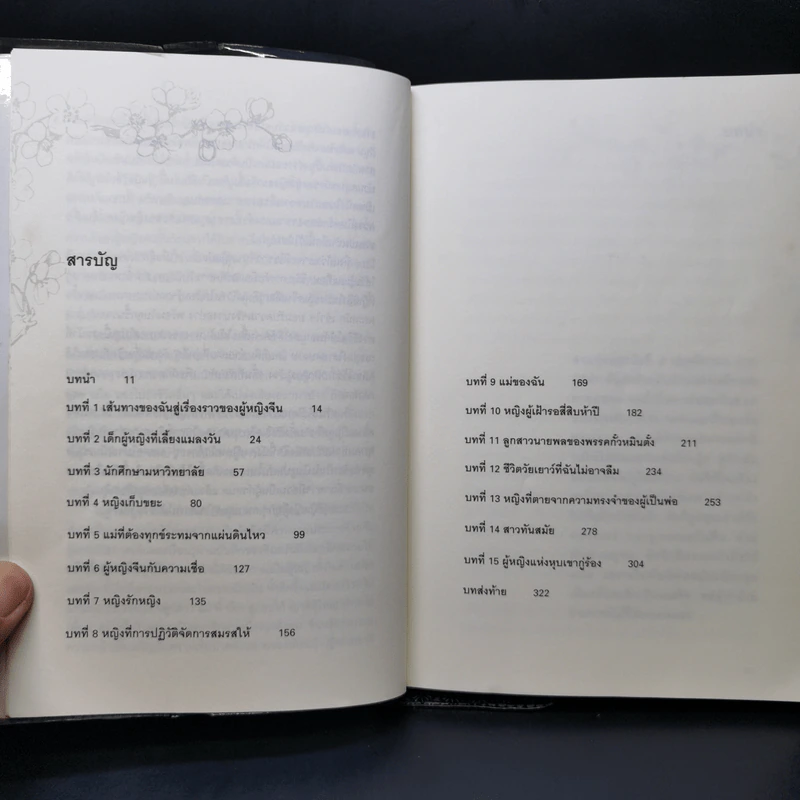 สารบัญ
บทนำ 11
บทที่ 1 เส้นทางของฉันสู่เรื่องราวของผู้หญิงจีน 14
บทที่ 2 เด็กผู้หญิงที่เลี้ยงแมลงวัน 24
บทที่ 3 นักศึกษามหาวิทยาลัย 57
บทที่ 4 หญิงเก็บขยะ 80
บทที่ 5 แม่ที่ต้องทุกข์ระทมจากแผ่นดินไหว 99
บทที่ 6 ผู้หญิงจีนกับความเชื่อ 127
บทที่ 7 หญิงรักหญิง 135
บทที่ 8 หญิงที่การปฏิวัติจัดการสมรสให้ 156
บทที่ 9 แม่ของฉัน 169
บทที่ 10 หญิงผู้เฝ้ารอสี่สิบห้าปี 182
บทที่ 11 ลูกสาวนายพลของพรรคกั๋วหมินตั่ง 211
บทที่ 12 ชีวิตวัยเยาว์ที่ฉันไม่อาจลืม 234
บทที่ 13 หญิงที่ตายจากความทรงจำของผู้เป็นพ่อ 253
บทที่ 14 สาวทันสมัย 278
บทที่ 15 ผู้หญิงแห่งหุบเขากู่ร้อง 304
บทส่งท้าย 322